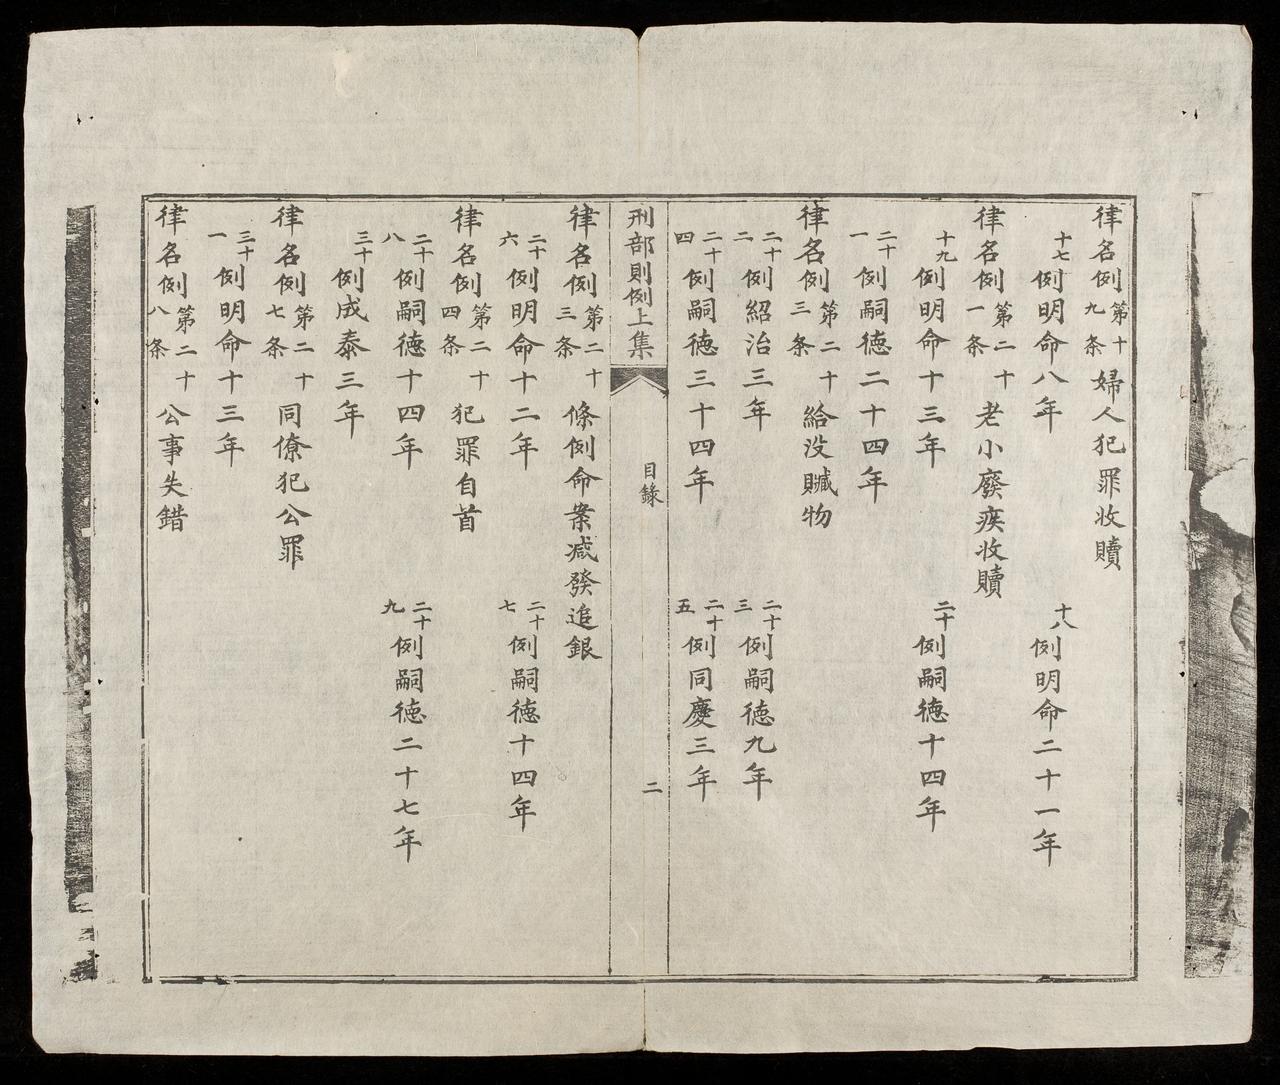 律名例第十九条婦人犯罪收贖
十七例明命八年 十八例明命二十一年
律名例第二十一条老小廢疾收贖
十九例明命十三年 二十例嗣徳十四年
二十一例嗣徳二十四年
律名例第二十三条給没贓物
二十二例紹治三年 二十三例嗣徳九年
二十四例嗣徳三十四年 二十五例同慶三年
刑部則例上集 目錄 二
律名例第二十三条條例命案减發追銀
二十六例明命十二年 二十七例嗣徳十四年
律名例第二十四条犯罪自首
二十八例嗣徳十四年 二十九例嗣徳二十七年
三十例成泰三年
律名例第二十七条同僚犯公罪
三十一例明命十三年
律名例第二十八条公事失錯